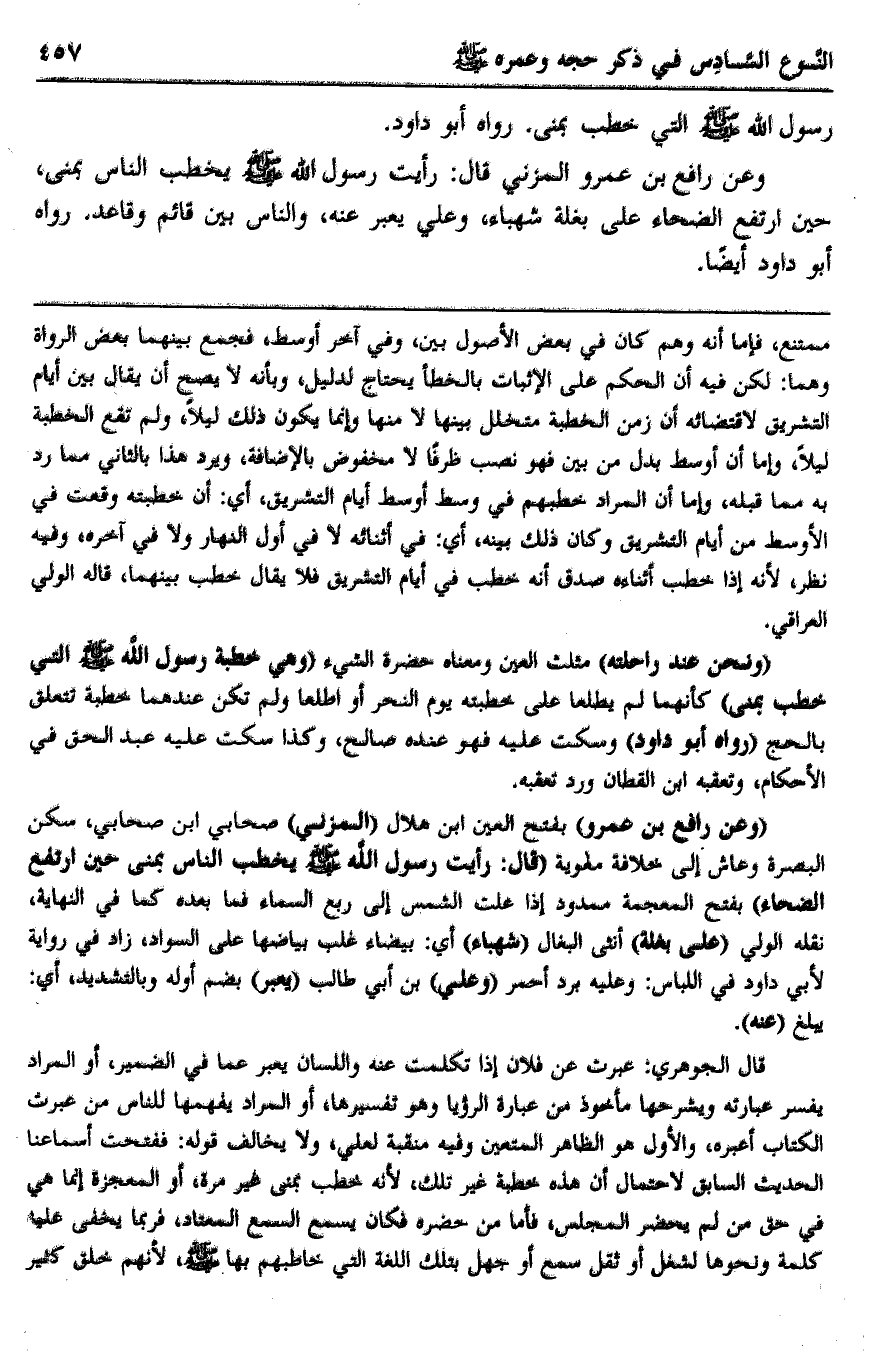 النَّـوع السَّادِس فـي ذكر حجه وعمره ﷺ ٤٥٧
رسول الله ﷺ التي خطب بمنى. رواه أبو داود.
وعن رافع بن عمرو المزني قال: رأيت رسول الله ﷺ يخطب الناس بمنى،
حين ارتفع الضحاء على بغلة شهباء، وعلي يعبر عنه، والناس بين قائم وقاعد. رواه
أبو داود أيضًا.
ممتنع، فإما أنه وهم كان في بعض الأصول بين، وفي آخر أوسط، فجمع بينهما بعض الرواة
وهما: لكن فيه أن الحكم على الإثبات بالخطأ يحتاج لدليل، وبأنه لا يصح أن يقال بين أيام
التشريق لاقتضائه أن زمن الخطبة متخلل بينها لا منها وإنما يكون ذلك ليلاً، ولم تقع الخطبة
ليلاً، وإما أن أوسط بدل من بين فهو نصب ظرفًا لا مخفوض بالإضافة، ويرد هذا بالثاني مما رد
به مما قبله، وإما أن المراد خطبهم في وسط أوسط أيام التشريق، أي: أن خطبته وقعت في
الأوسط من أيام التشريق وكان ذلك بينه، أي: في أثنائه لا في أول النهار ولا في آخره، وفيه
نظر، لأنه إذا خطب أثناءه صدق أنه خطب في أيام التشريق فلا يقال خطب بينهما، قاله الولي
العراقي.
(ونحن عند راحلته) مثلث العين ومعناه حضرة الشيء (وهي خطبة رسول اللَّه ﷺ التي
خطب بمنى) كأنهما لم يطلعا على خطبته يوم النحر أو اطلعا ولم تكن عندهما خطبة تتعلق
بالحج (رواه أبو داود) وسكت عليه فهو عنده صالح، وكذا سكت عليه عبد الحق في
الأحكام، وتعقبه ابن القطان ورد تعقبه.
(وعن رافع بن عمرو) بفتح العين ابن هلال (المزني) صحابي ابن صحابي، سكن
البصرة وعاش إلى خلافة ملموية (قال: رأيت رسول اللَّه ﷺ يخطب الناس بمنى حين ارتفع
الضحاء) بفتح المعجمة ممدود إذا علت الشمس إلى ربع السماء فما بعده كما في النهاية،
نقله الولي (على بغلة) أنثى البغال (شهباء) أي: بيضاء غلب بياضها على السواد، زاد في رواية
لأبي داود في اللباس: وعليه برد أحمر (وعلي) بن أبي طالب (يعبر) بضم أوله وبالتشديد، أي:
يبلغ (عنه).
قال الجوهري: عبرت عن فلان إذا تكلمت عنه واللسان يعبر عما في الضمير، أو المراد
يفسر عبارته ويشرحها مأخوذ من عبارة الرؤيا وهو تفسيرها، أو المراد يفهمها للناس من عبرت
الكتاب أعبره، والأول هو الظاهر المتعين وفيه منقبة لعلي، ولا يخالف قوله: ففتحت أسماعنا
الحديث السابق لاحتمال أن هذه خطبة غير تلك، لأنه خطب بمنى غير مرة، أو المعجزة إنما هي
في حق من لم يحضر المجلس، فأما من حضره فكان يسمع السمع المعتاد، فربما يخفى عليه
كلمة ونحوها لشغل أو ثقل سمع أو جهل بتلك اللغة التي خاطبهم بها ﷺ، لأنهم خلق كثير